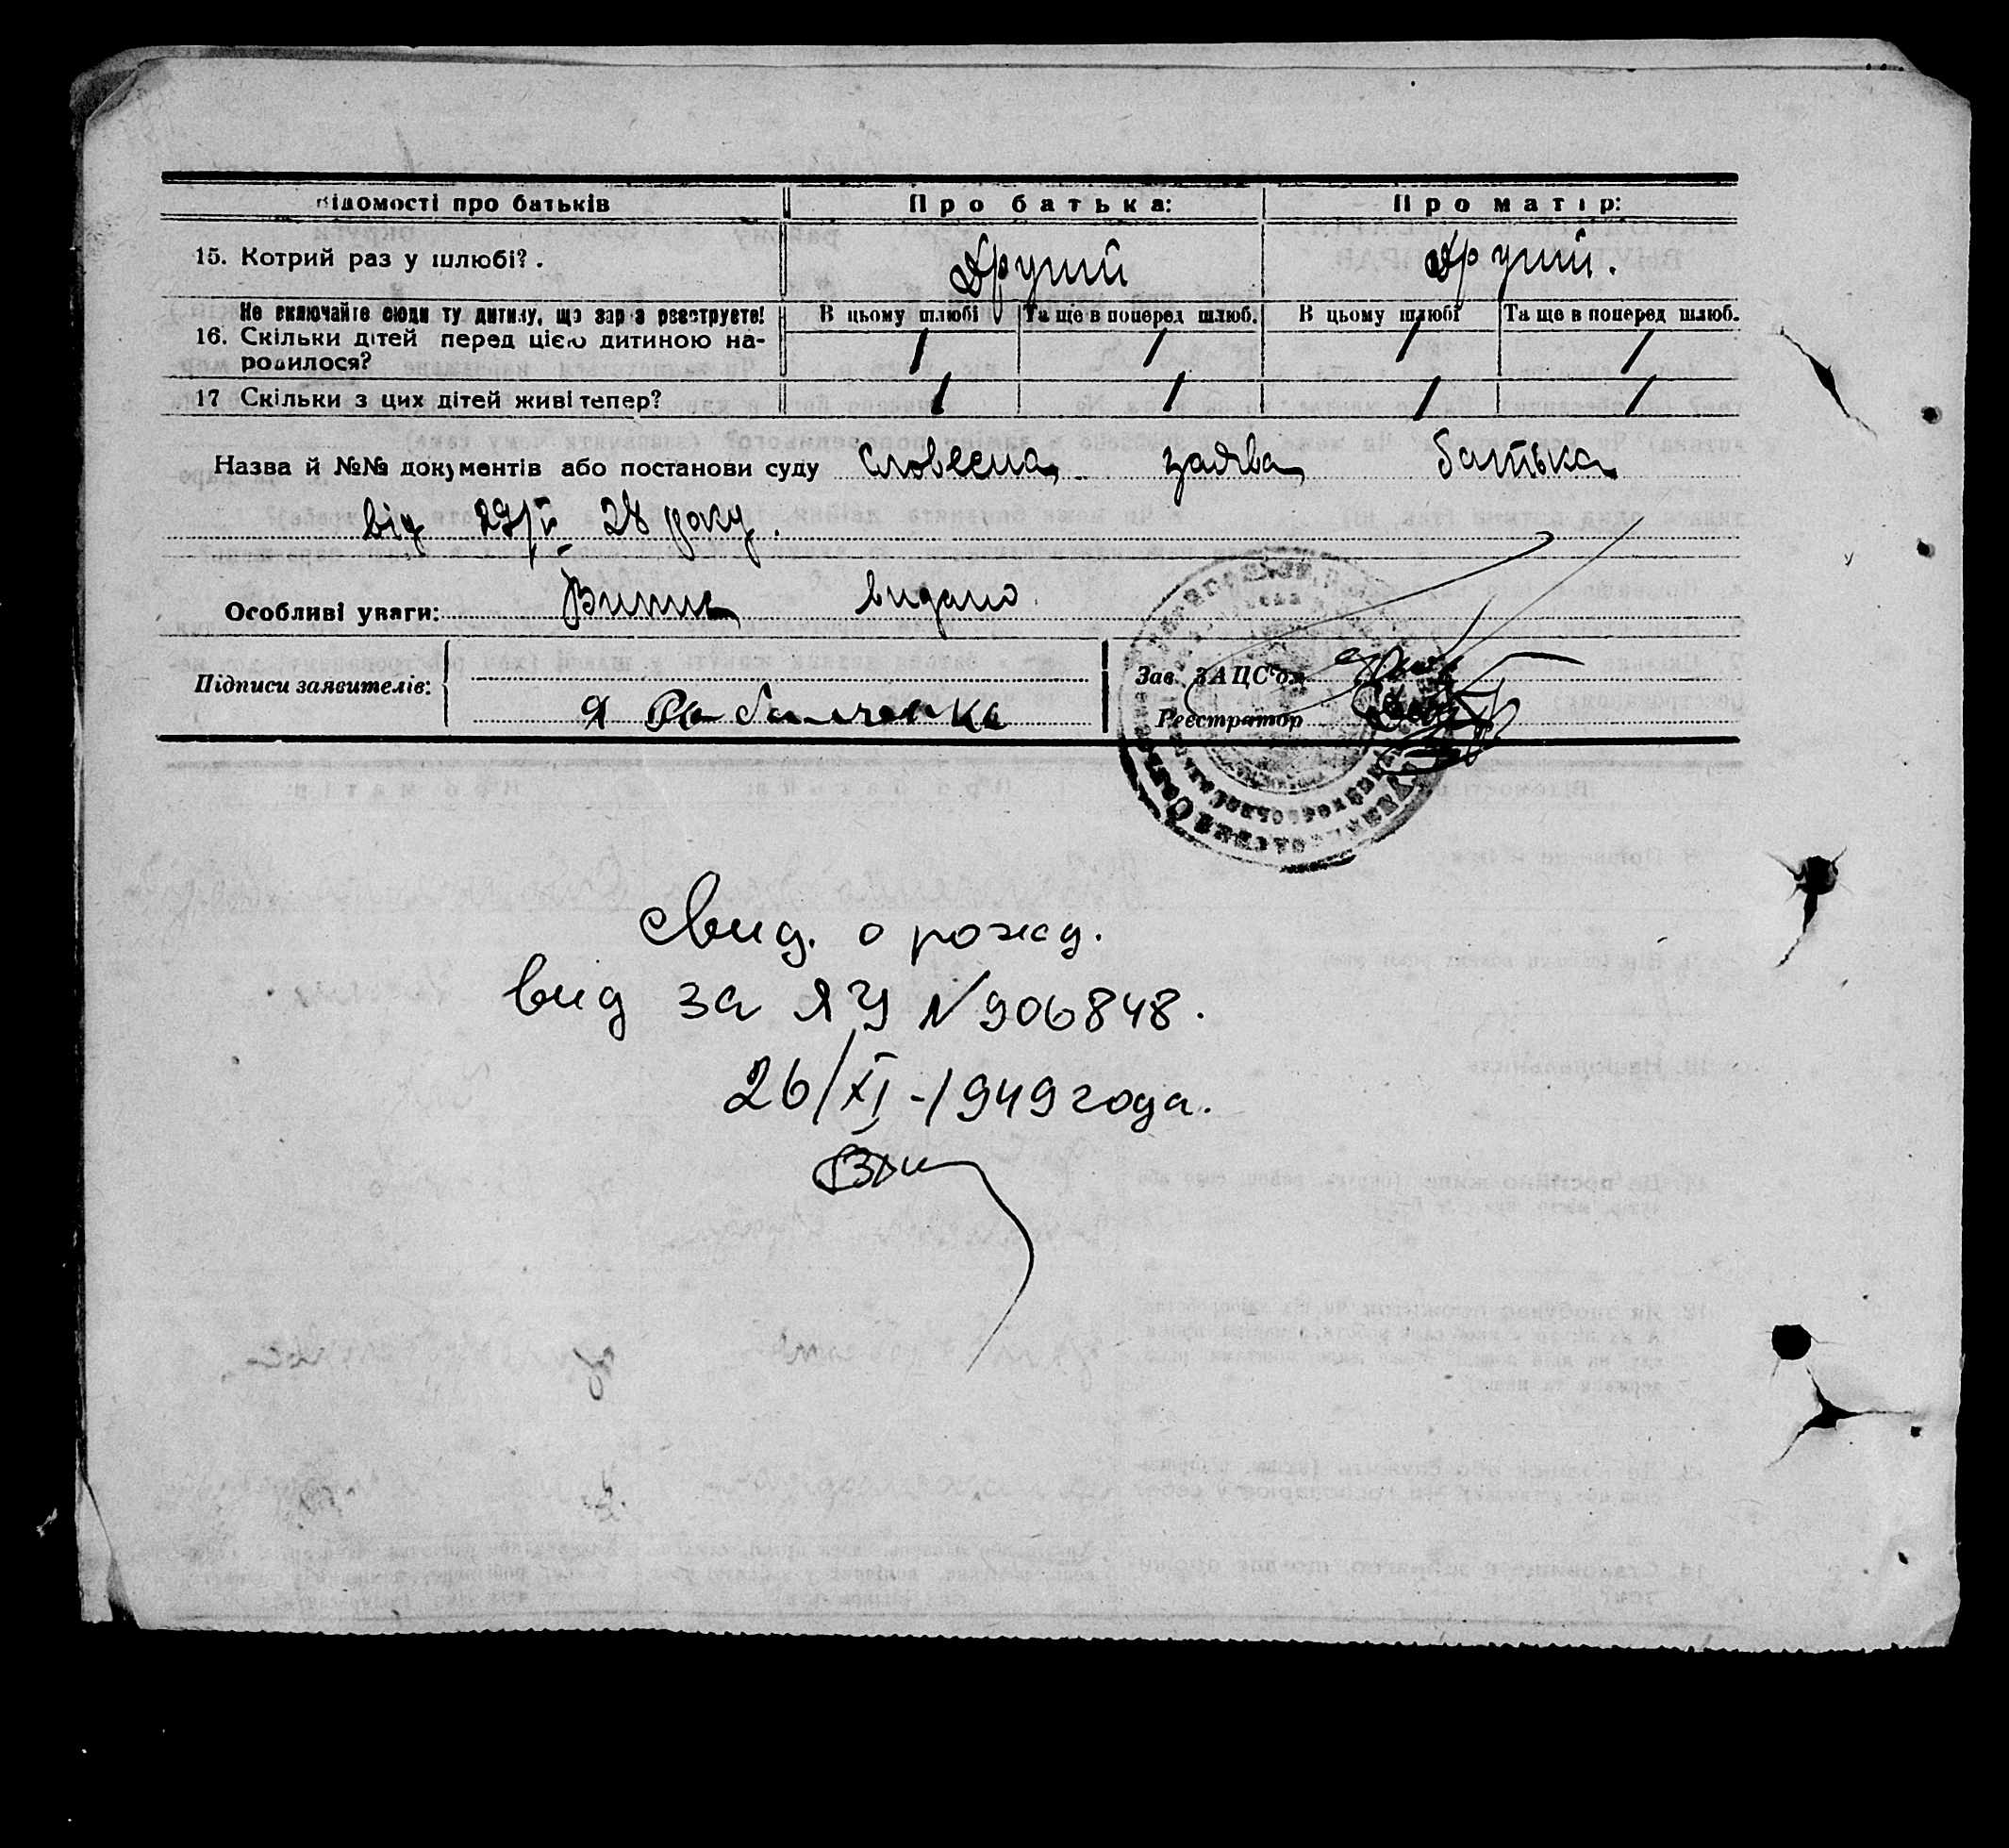 Відомості про батьків Про батька: Про матір:
15. Котрий раз у шлюбі? . Другий Другий.
Не включайте сюди ту дитину, що зараз реєструєте! В цьому шлюбі Та ще в поперед шлюб. В цьому шлюбі Та ще в поперед шлюб.
16. Скільки дітей перед цією дитиною на-
родилося? / / / /
17 Скільки з цих дітей живі тепер? / / / /
Назва й №№ документів або постанови суду словесна заява батька
від 28 року.
Особливі уваги: Випис видано
Підписи заявителів: Зав. ЗАЦС'ом
Я Реєстратор
Свид. о рожд.
вид за ЯУ N 906848.
26/XI-1949 года.